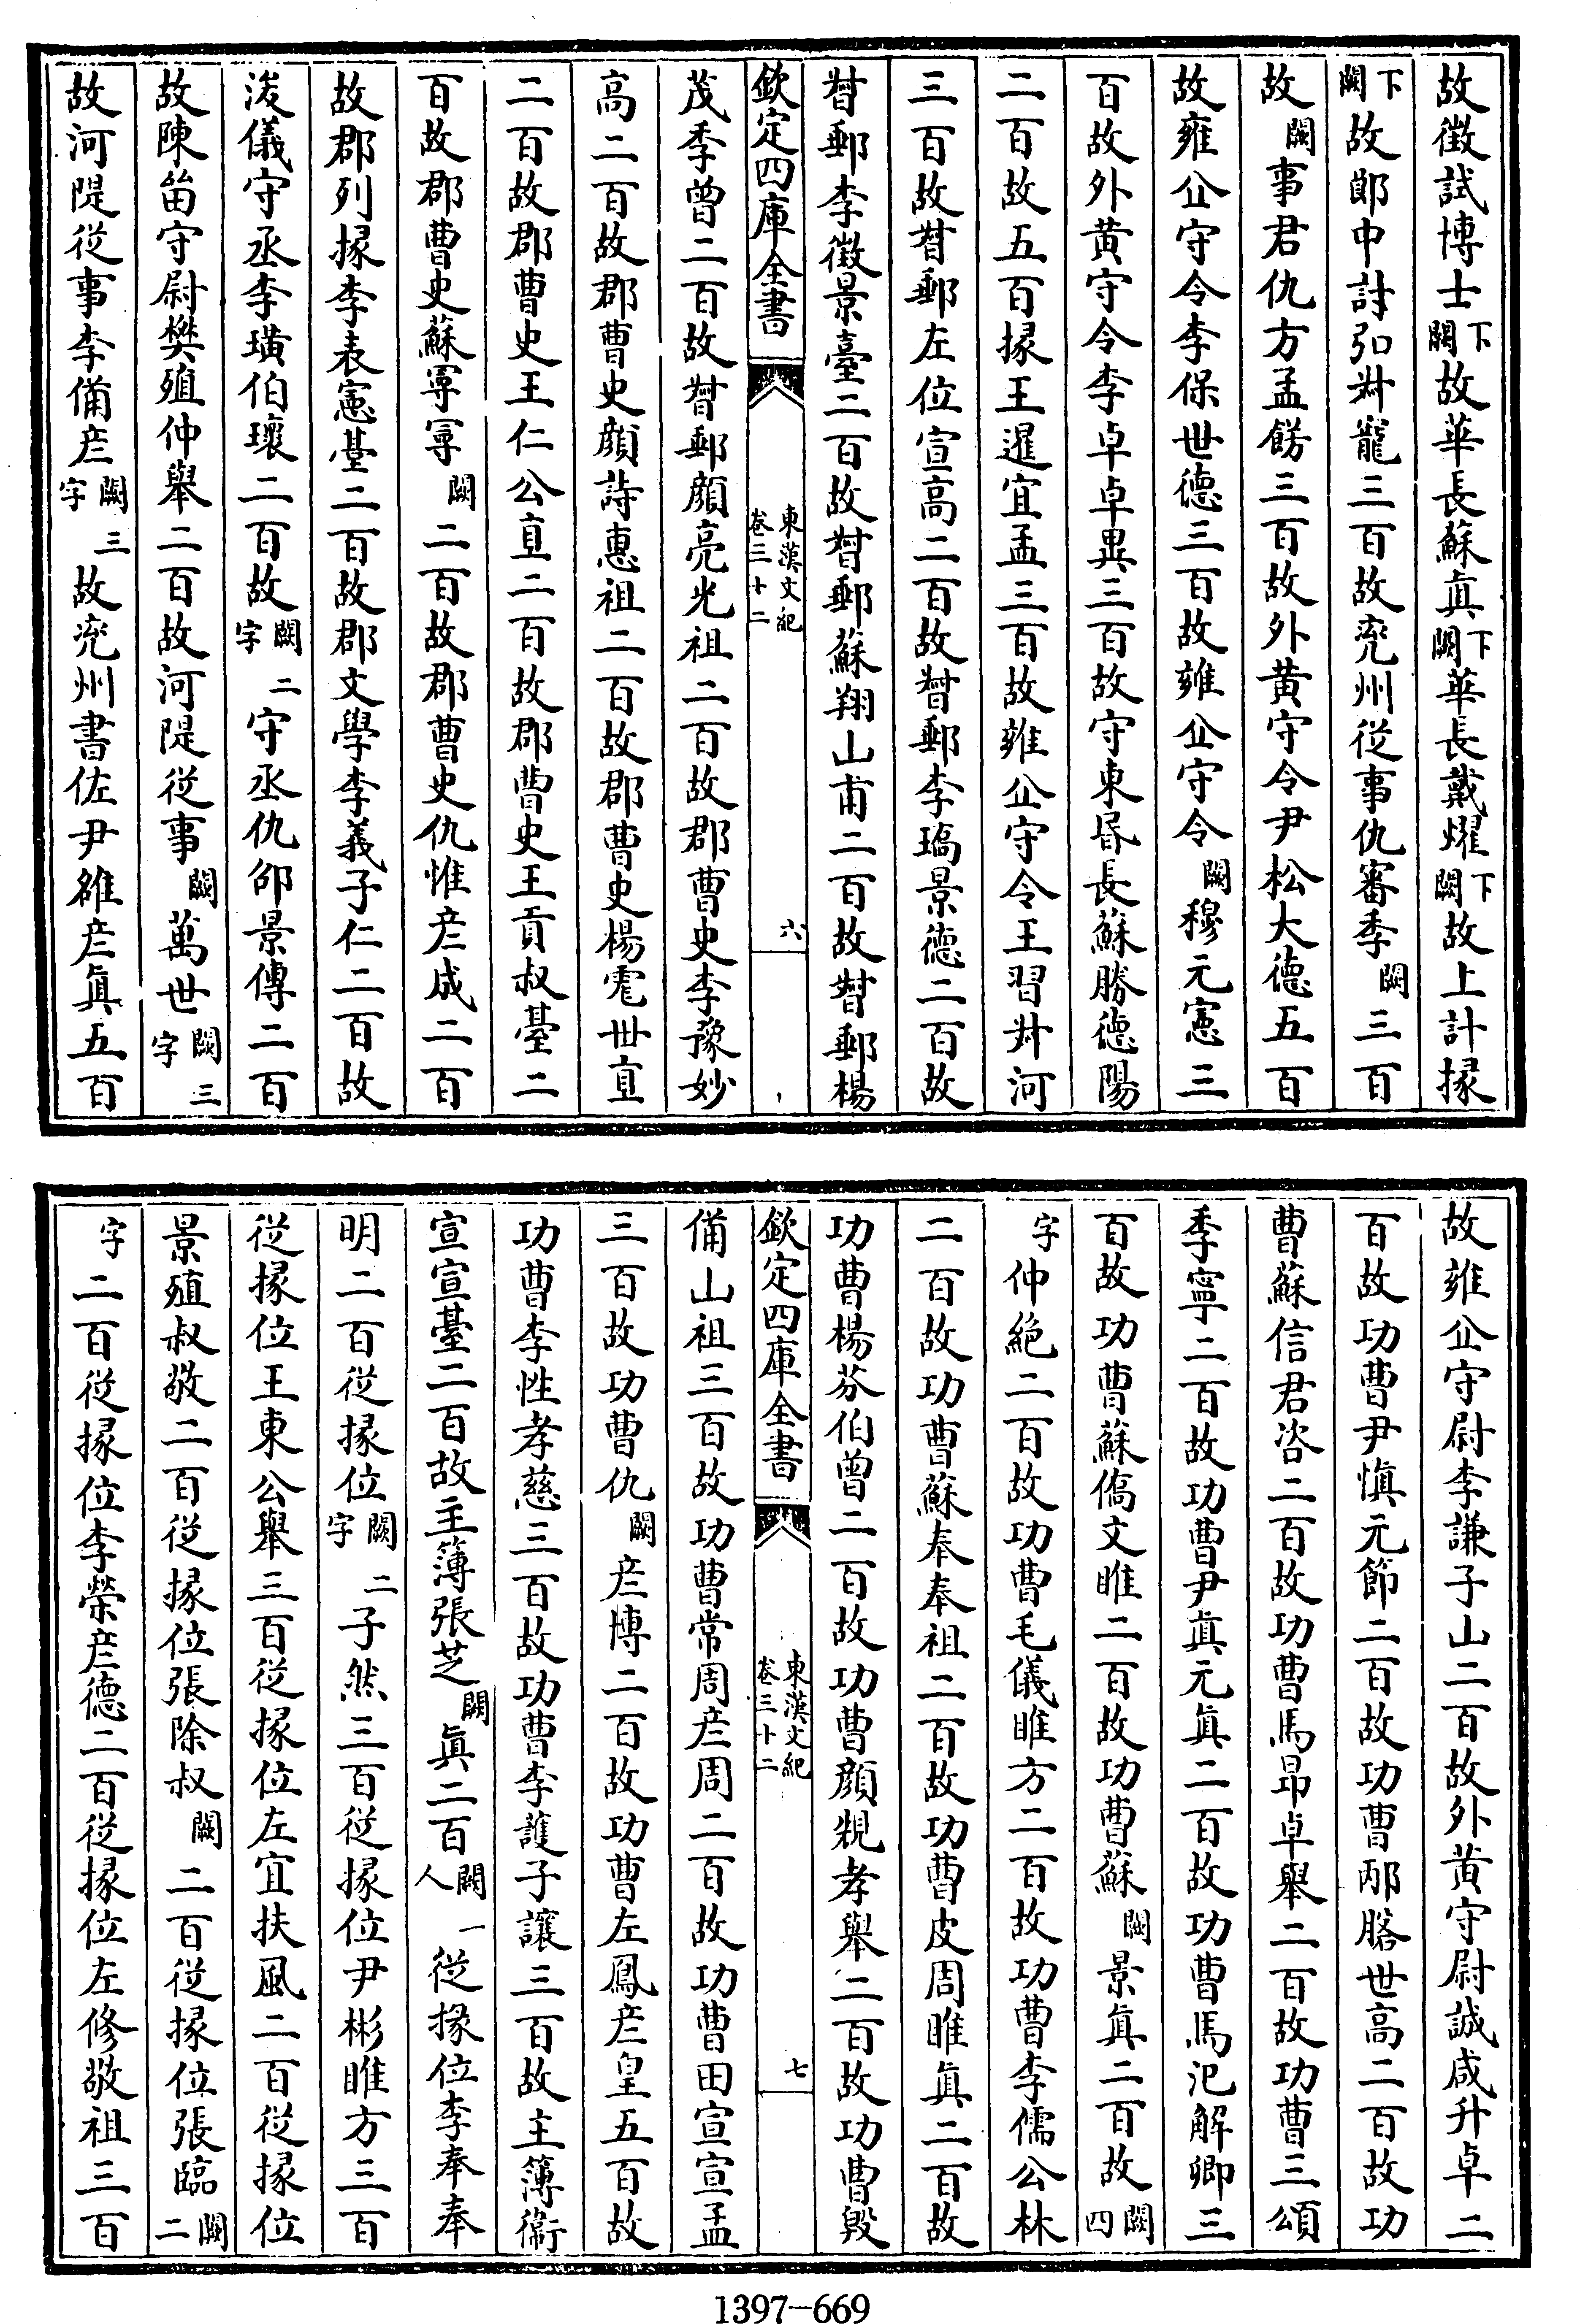 故徵試博士下闕故華長蘇真下闕華長戴燿下闕故上計掾
下闕故郎中討弘叔寵三百故兖州從事仇審季闕三百
故闕事君仇方孟餝三百故外黄守令尹松大德五百
故雍丘守令李保世德三百故雍丘守令闕穆元憲三
百故外黄守令李卓卓異三百故守東昏長蘇勝德陽
二百故五百掾王暹宜孟三百故雍丘守令王習叔河
三百故督郵左位宣高二百故督郵李瑀景德二百故
督郵李徵景臺二百故督郵蘇翔山甫二百故督郵楊
欽定四庫全書
東漢文紀
卷三十二
六
茂季曾二百故督郵顏亮光祖二百故郡曹史李豫妙
高二百故郡曹史顏詩惠祖二百故郡曹史楊雹世亶
二百故郡曹史王仁公亶二百故郡曹史王貢叔臺二
百故郡曹史蘇寧寧闕二百故郡曹史仇惟彦成二百
故郡列掾李表憲臺二百故郡文學李義子仁二百故
浚儀守丞李璜伯瓌二百故闕二字守丞仇邠景傳二百
故陳笛守尉樊殖仲舉二百故河隄從事闕萬世闕三字
故河隄從事李備彦闕三字故兖州書佐尹雒彦真五百
故雍丘守尉李謙子山二百故外黄守尉誠咸升卓二
百故功曹尹慎元節二百故功曹邴䐨世高二百故功
曹蘇信君咨二百故功曹馬昻卓舉二百故功曹三頌
季寧二百故功曹尹真元真二百故功曹馬汜解卿三
百故功曹蘇儁文睢二百故功曹蘇闕景真二百故闕四
字仲絶二百故功曹毛儀睢方二百故功曹李儒公林
二百故功曹蘇奉奉祖二百故功曹皮周睢真二百故
功曹楊芬伯曾二百故功曹顏䙿孝舉二百故功曹毁
欽定四庫全書
東漢文紀
卷三十二
七
備山祖三百故功曹常周彦周二百故功曹田宣宣孟
三百故功曹仇闕彦博二百故功曹左鳳彦皇五百故
功曹李性孝慈三百故功曹李護子讓三百故主簿衞
宣宣臺二百故主簿張芝闕真二百闕一人從掾位李奉奉
明二百從掾位闕二字子然三百從掾位尹彬睢方三百
從掾位王東公舉三百從掾位左宜扶風二百從掾位
景殖叔敬二百從掾位張除叔闕二百從掾位張臨闕二
字二百從掾位李榮彦德二百從掾位左修敬祖三百
1397-669